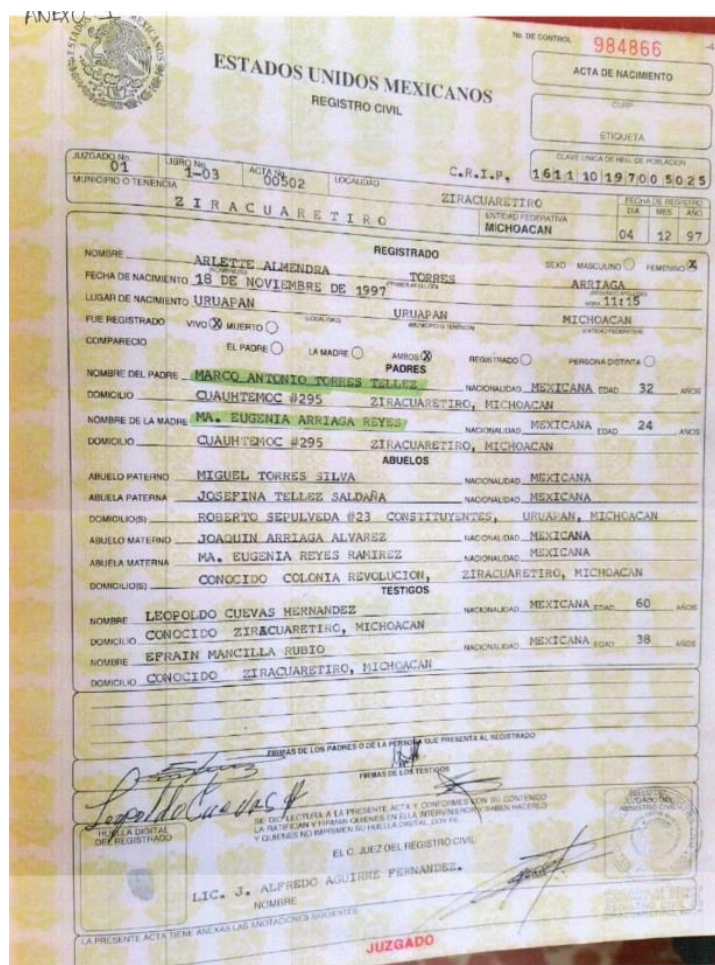 ANEXO 1
No. DE CONTROL 984866
ESTADOS UNIDOS MEXICANOS
REGISTRO CIVIL
ACTA DE NACIMIENTO
CURP
ETIQUETA
JUZGADO No. 01 LIBRO No. 1-03 ACTA No. 00502 LOCALIDAD C.R.I.P. CLAVE UNICA DE REG. DE POBLACION 1611 10 19700 5025
MUNICIPIO O TENENCIA ZIRACUARETIRO ZIRACUARETIRO
ENTIDAD FEDERATIVA MICHOACAN FECHA DE REGISTRO DIA 04 MES 12 AÑO 97
REGISTRADO
NOMBRE ARLETTE ALMENDRA TORRES ARRIAGA SEXO MASCULINO FEMENINO X
FECHA DE NACIMIENTO 18 DE NOVIEMBRE DE 1997 HORA 11:15
LUGAR DE NACIMIENTO URUAPAN URUAPAN MICHOACAN
LOCALIDAD MUNICIPIO O TENENCIA ENTIDAD FEDERATIVA
FUE REGISTRADO VIVO X MUERTO
COMPARECIO EL PADRE LA MADRE AMBOS X REGISTRADO PERSONA DISTINTA
PADRES
NOMBRE DEL PADRE MARCO ANTONIO TORRES TELLEZ NACIONALIDAD MEXICANA EDAD 32 AÑOS
DOMICILIO CUAUHTEMOC #295 ZIRACUARETIRO, MICHOACAN
NOMBRE DE LA MADRE MA. EUGENIA ARRIAGA REYES NACIONALIDAD MEXICANA EDAD 24 AÑOS
DOMICILIO CUAUHTEMOC #295 ZIRACUARETIRO, MICHOACAN
ABUELOS
ABUELO PATERNO MIGUEL TORRES SILVA NACIONALIDAD MEXICANA
ABUELA PATERNA JOSEFINA TELLEZ SALDAÑA NACIONALIDAD MEXICANA
DOMICILIO(S) ROBERTO SEPULVEDA #23 CONSTITUYENTES, URUAPAN, MICHOACAN
ABUELO MATERNO JOAQUIN ARRIAGA ALVAREZ NACIONALIDAD MEXICANA
ABUELA MATERNA MA. EUGENIA REYES RAMIREZ NACIONALIDAD MEXICANA
DOMICILIO(S) CONOCIDO COLONIA REVOLUCION, ZIRACUARETIRO, MICHOACAN
TESTIGOS
NOMBRE LEOPOLDO CUEVAS HERNANDEZ NACIONALIDAD MEXICANA EDAD 60 AÑOS
DOMICILIO CONOCIDO ZIRACUARETIRO, MICHOACAN
NOMBRE EFRAIN MANCILLA RUBIO NACIONALIDAD MEXICANA EDAD 38 AÑOS
DOMICILIO CONOCIDO ZIRACUARETIRO, MICHOACAN
FIRMAS DE LOS PADRES O DE LA PERSONA QUE PRESENTA AL REGISTRADO
FIRMAS DE LOS TESTIGOS
Leopoldo Cuevas H
HUELLA DIGITAL DEL REGISTRADO
SE DIO LECTURA A LA PRESENTE ACTA Y CONFORMES CON SU CONTENIDO
LA RATIFICAN Y FIRMAN QUIENES EN ELLA INTERVINIERON Y SABEN HACERLO
Y QUIENES NO IMPRIMEN SU HUELLA DIGITAL. DOY FE
EL C. JUEZ DEL REGISTRO CIVIL
LIC. J. ALFREDO AGUIRRE FERNANDEZ.
NOMBRE
LA PRESENTE ACTA TIENE ANEXAS LAS ANOTACIONES SIGUIENTES
JUZGADO